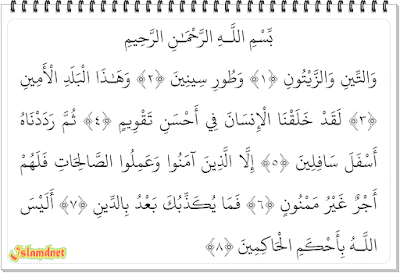 بِّسْمِ اللَّـهِ الرَّحْمَـٰنِ الرَّحِيمِ
وَالتِّينِ وَالزَّيْتُونِ ﴿١﴾ وَطُورِ سِينِينَ ﴿٢﴾ وَهَـٰذَا الْبَلَدِ الْأَمِينِ
﴿٣﴾ لَقَدْ خَلَقْنَا الْإِنسَانَ فِي أَحْسَنِ تَقْوِيمٍ ﴿٤﴾ ثُمَّ رَدَدْنَاهُ
أَسْفَلَ سَافِلِينَ ﴿٥﴾ إِلَّا الَّذِينَ آمَنُوا وَعَمِلُوا الصَّالِحَاتِ فَلَهُمْ
أَجْرٌ غَيْرُ مَمْنُونٍ ﴿٦﴾ فَمَا يُكَذِّبُكَ بَعْدُ بِالدِّينِ ﴿٧﴾ أَلَيْسَ
اللَّـهُ بِأَحْكَمِ الْحَاكِمِينَ ﴿٨﴾
Islamdnet